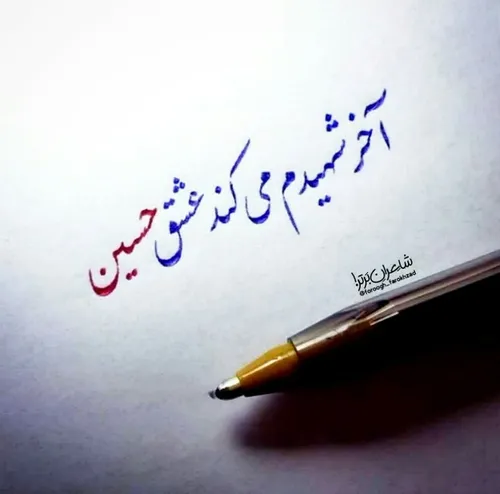 آخر شهیدم می کند عشق حسین
شاعران برتر
@foroogh_farokhzad